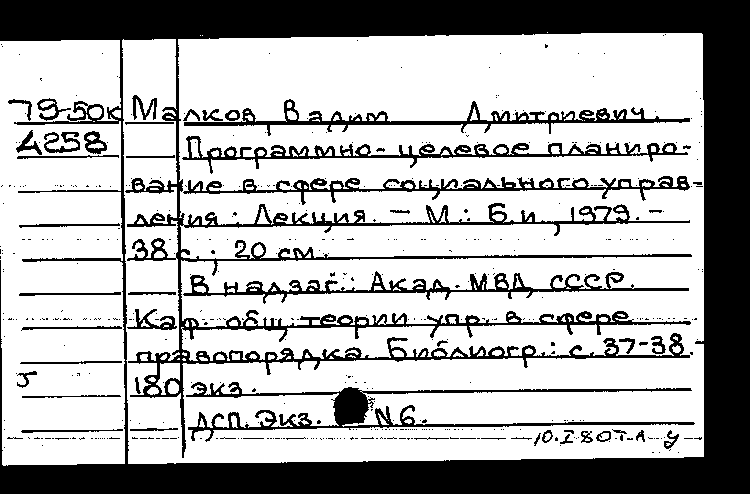 79-50к Малков, Вадим Дмитриевич.
4258 Программно-целевое планиро-
вание в сфере социального управ-
ления : Лекция. — М. : Б.и., 1979. —
38 с. ; 20 см.
В надзаг.: Акад. МВД СССР.
Каф. общ. теории упр. в сфере
правопорядка. Библиогр.: с. 37-38. -
180 экз.
ДСП. Экз. N 6.
10.I 80 т-А